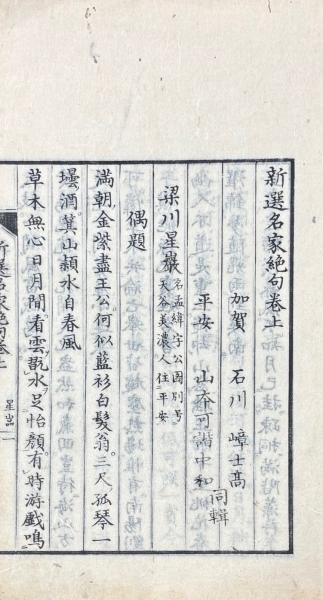 新選名家絶句卷上
加賀 石川 嶂士高
平安 山夲可 中和 同輯
梁川星巖 名孟緯字公圖別号天谷美濃人住平安
偶題
滿朝金紫盡王公何似藍衫白髮翁二尺孤琴一
壜酒箕山潁水自春風
草木無心日月間看雲 水足怡顔有時游戲鳴
新選名家絶句卷上 星出 一